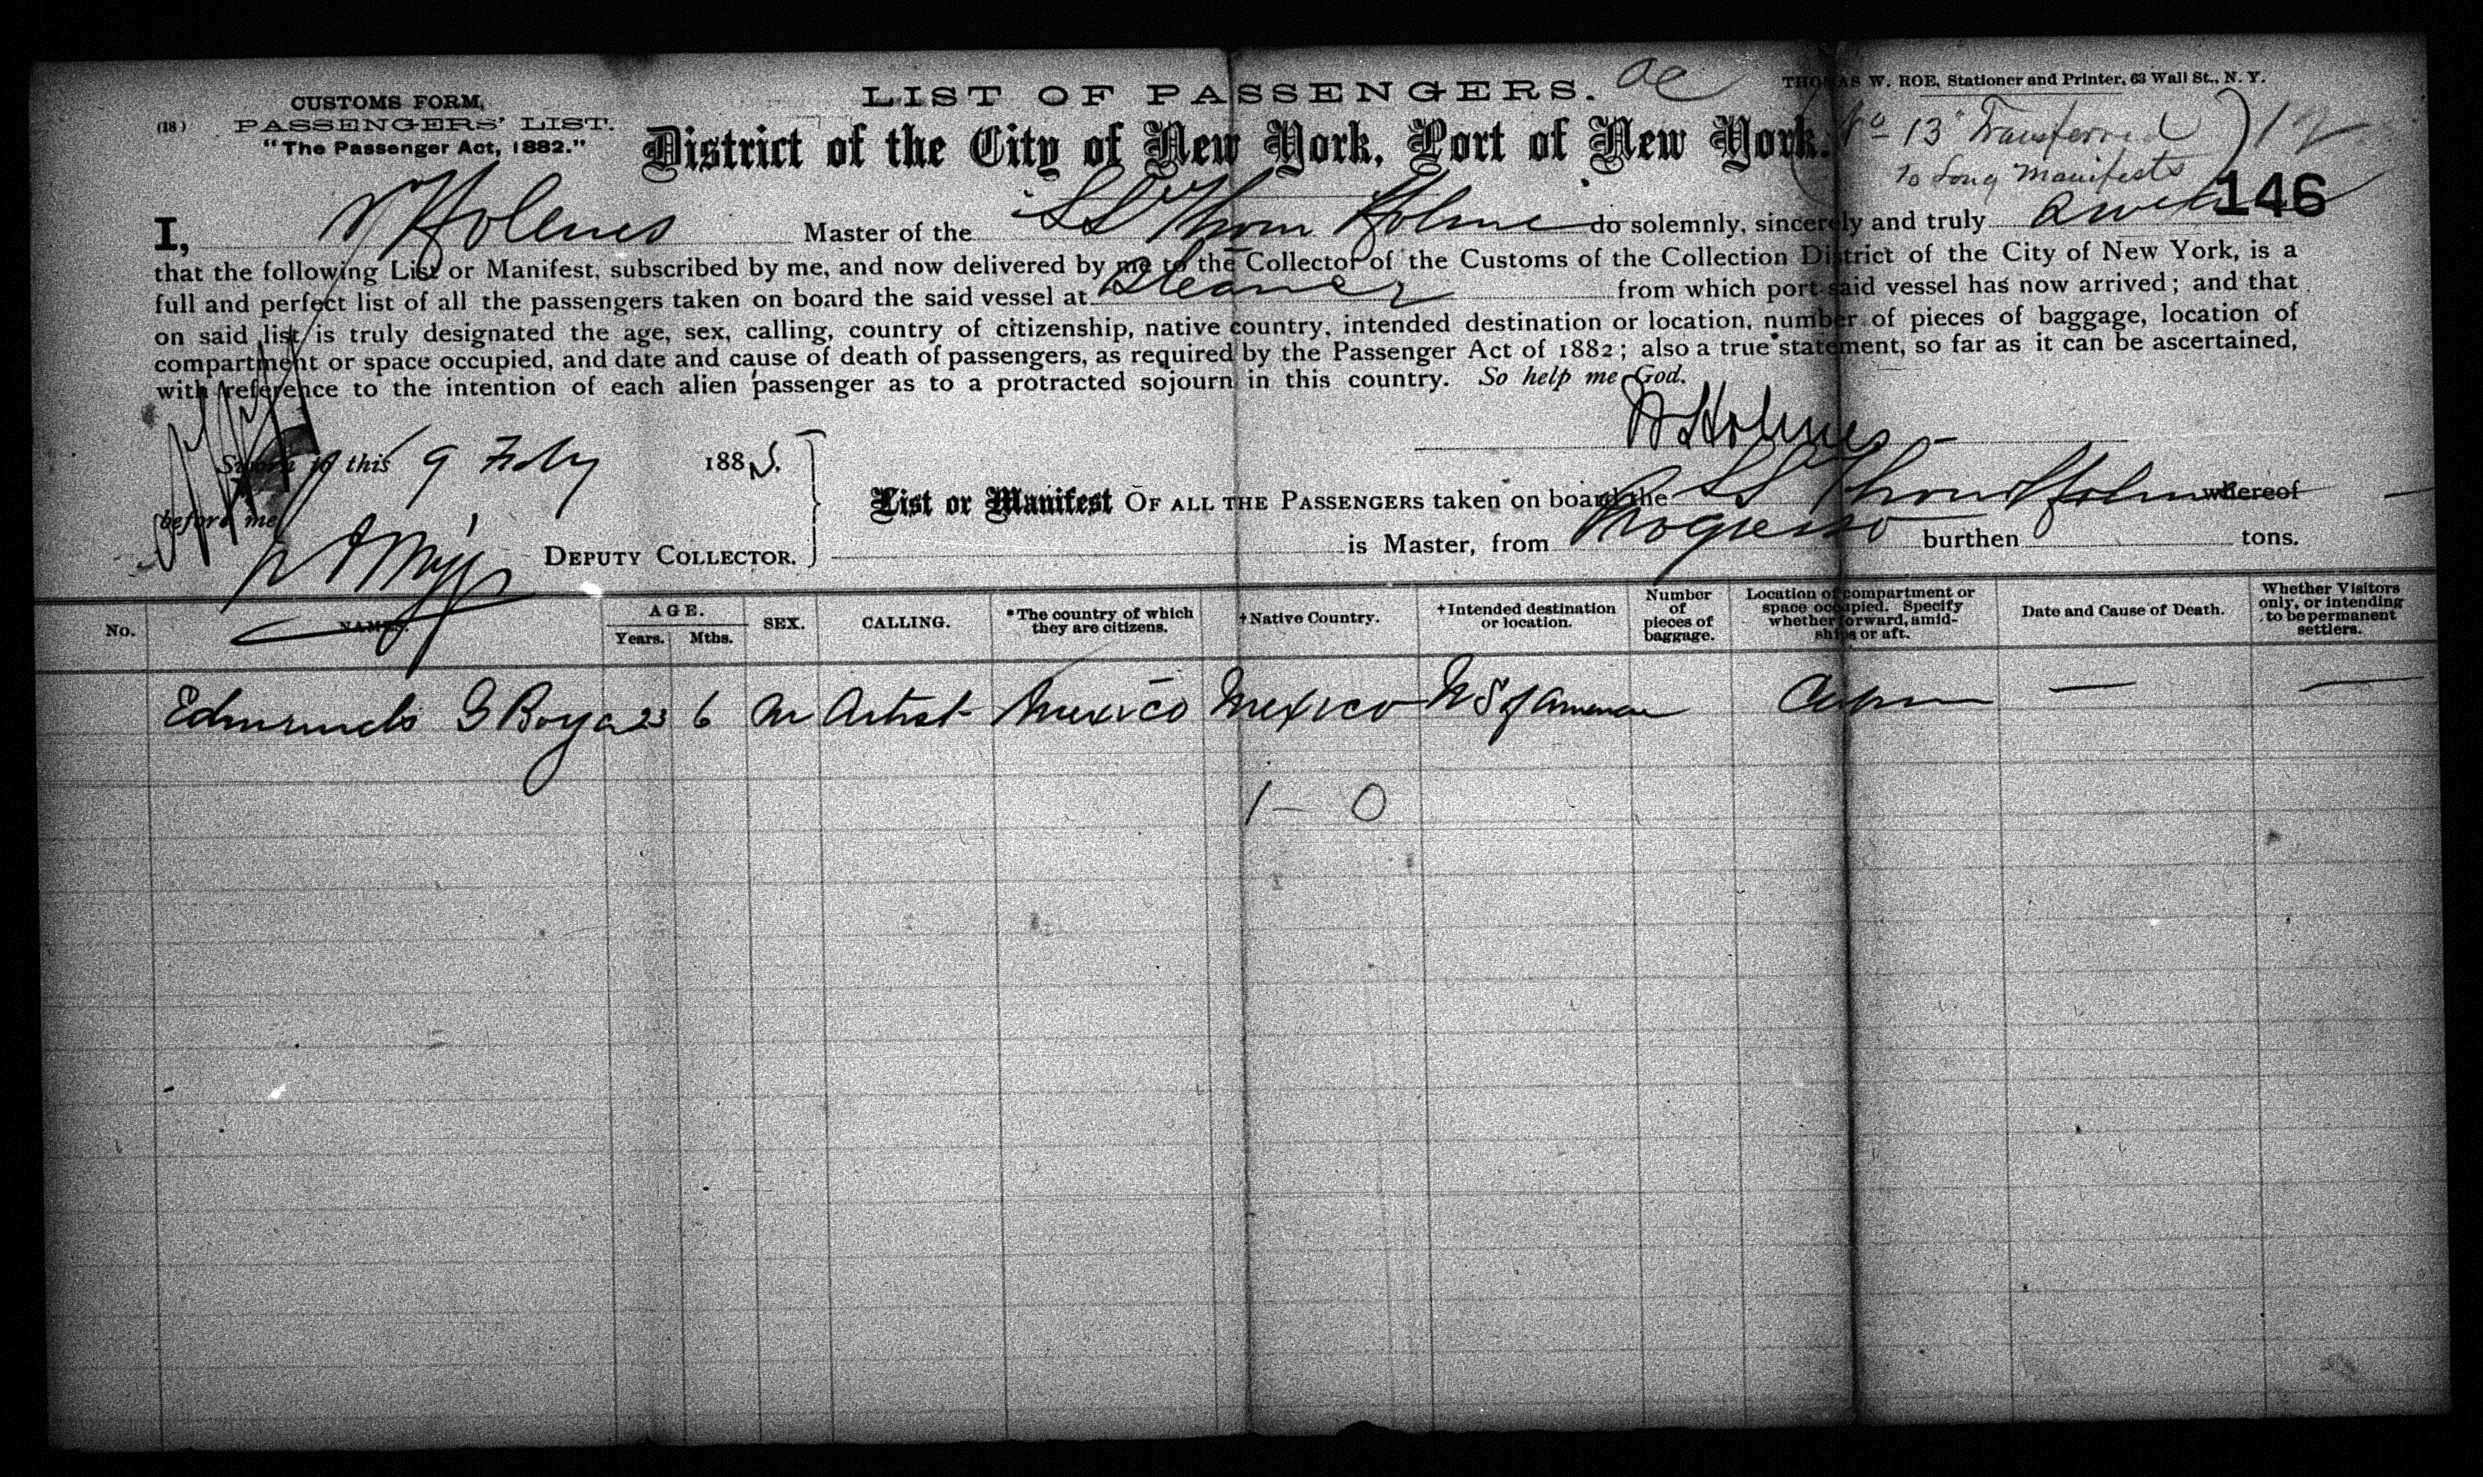 LIST OF PASSENGERS.
THOMAS W. ROE, Stationer and Printer, 63 Wall St., N. Y.
CUSTOMS FORM,
(18) PASSENGERS' LIST.
"The Passenger Act, 1882."
District of the City of New York, Port of New York.
13 Transferred
To Long Manifests
146
I, Holmes Master of the SS Thom Holme do solemnly, sincerely and truly
that the following List or Manifest, subscribed by me, and now delivered by me to the Collector of the Customs of the Collection District of the City of New York, is a
full and perfect list of all the passengers taken on board the said vessel at from which port said vessel has now arrived; and that
on said list is truly designated the age, sex, calling, country of citizenship, native country, intended destination or location, number of pieces of baggage, location of
compartment or space occupied, and date and cause of death of passengers, as required by the Passenger Act of 1882; also a true statement, so far as it can be ascertained,
with reference to the intention of each alien passenger as to a protracted sojourn in this country. So help me God.
Holmes
Sworn to this 9 Feby 188
before me
DEPUTY COLLECTOR.
List or Manifest OF ALL THE PASSENGERS taken on board the SS Thom Holme whereof
is Master, from Progresso burthen tons.
No. NAMES. AGE. Years. Mths. SEX. CALLING. *The country of which they are citizens. †Native Country. †Intended destination or location. Number of pieces of baggage. Location of compartment or space occupied. Specify whether forward, amidships or aft. Date and Cause of Death. Whether Visitors only, or intending to be permanent settlers.
G Boya 23 6 M Artist Mexico Mexico US of America
1 - 0